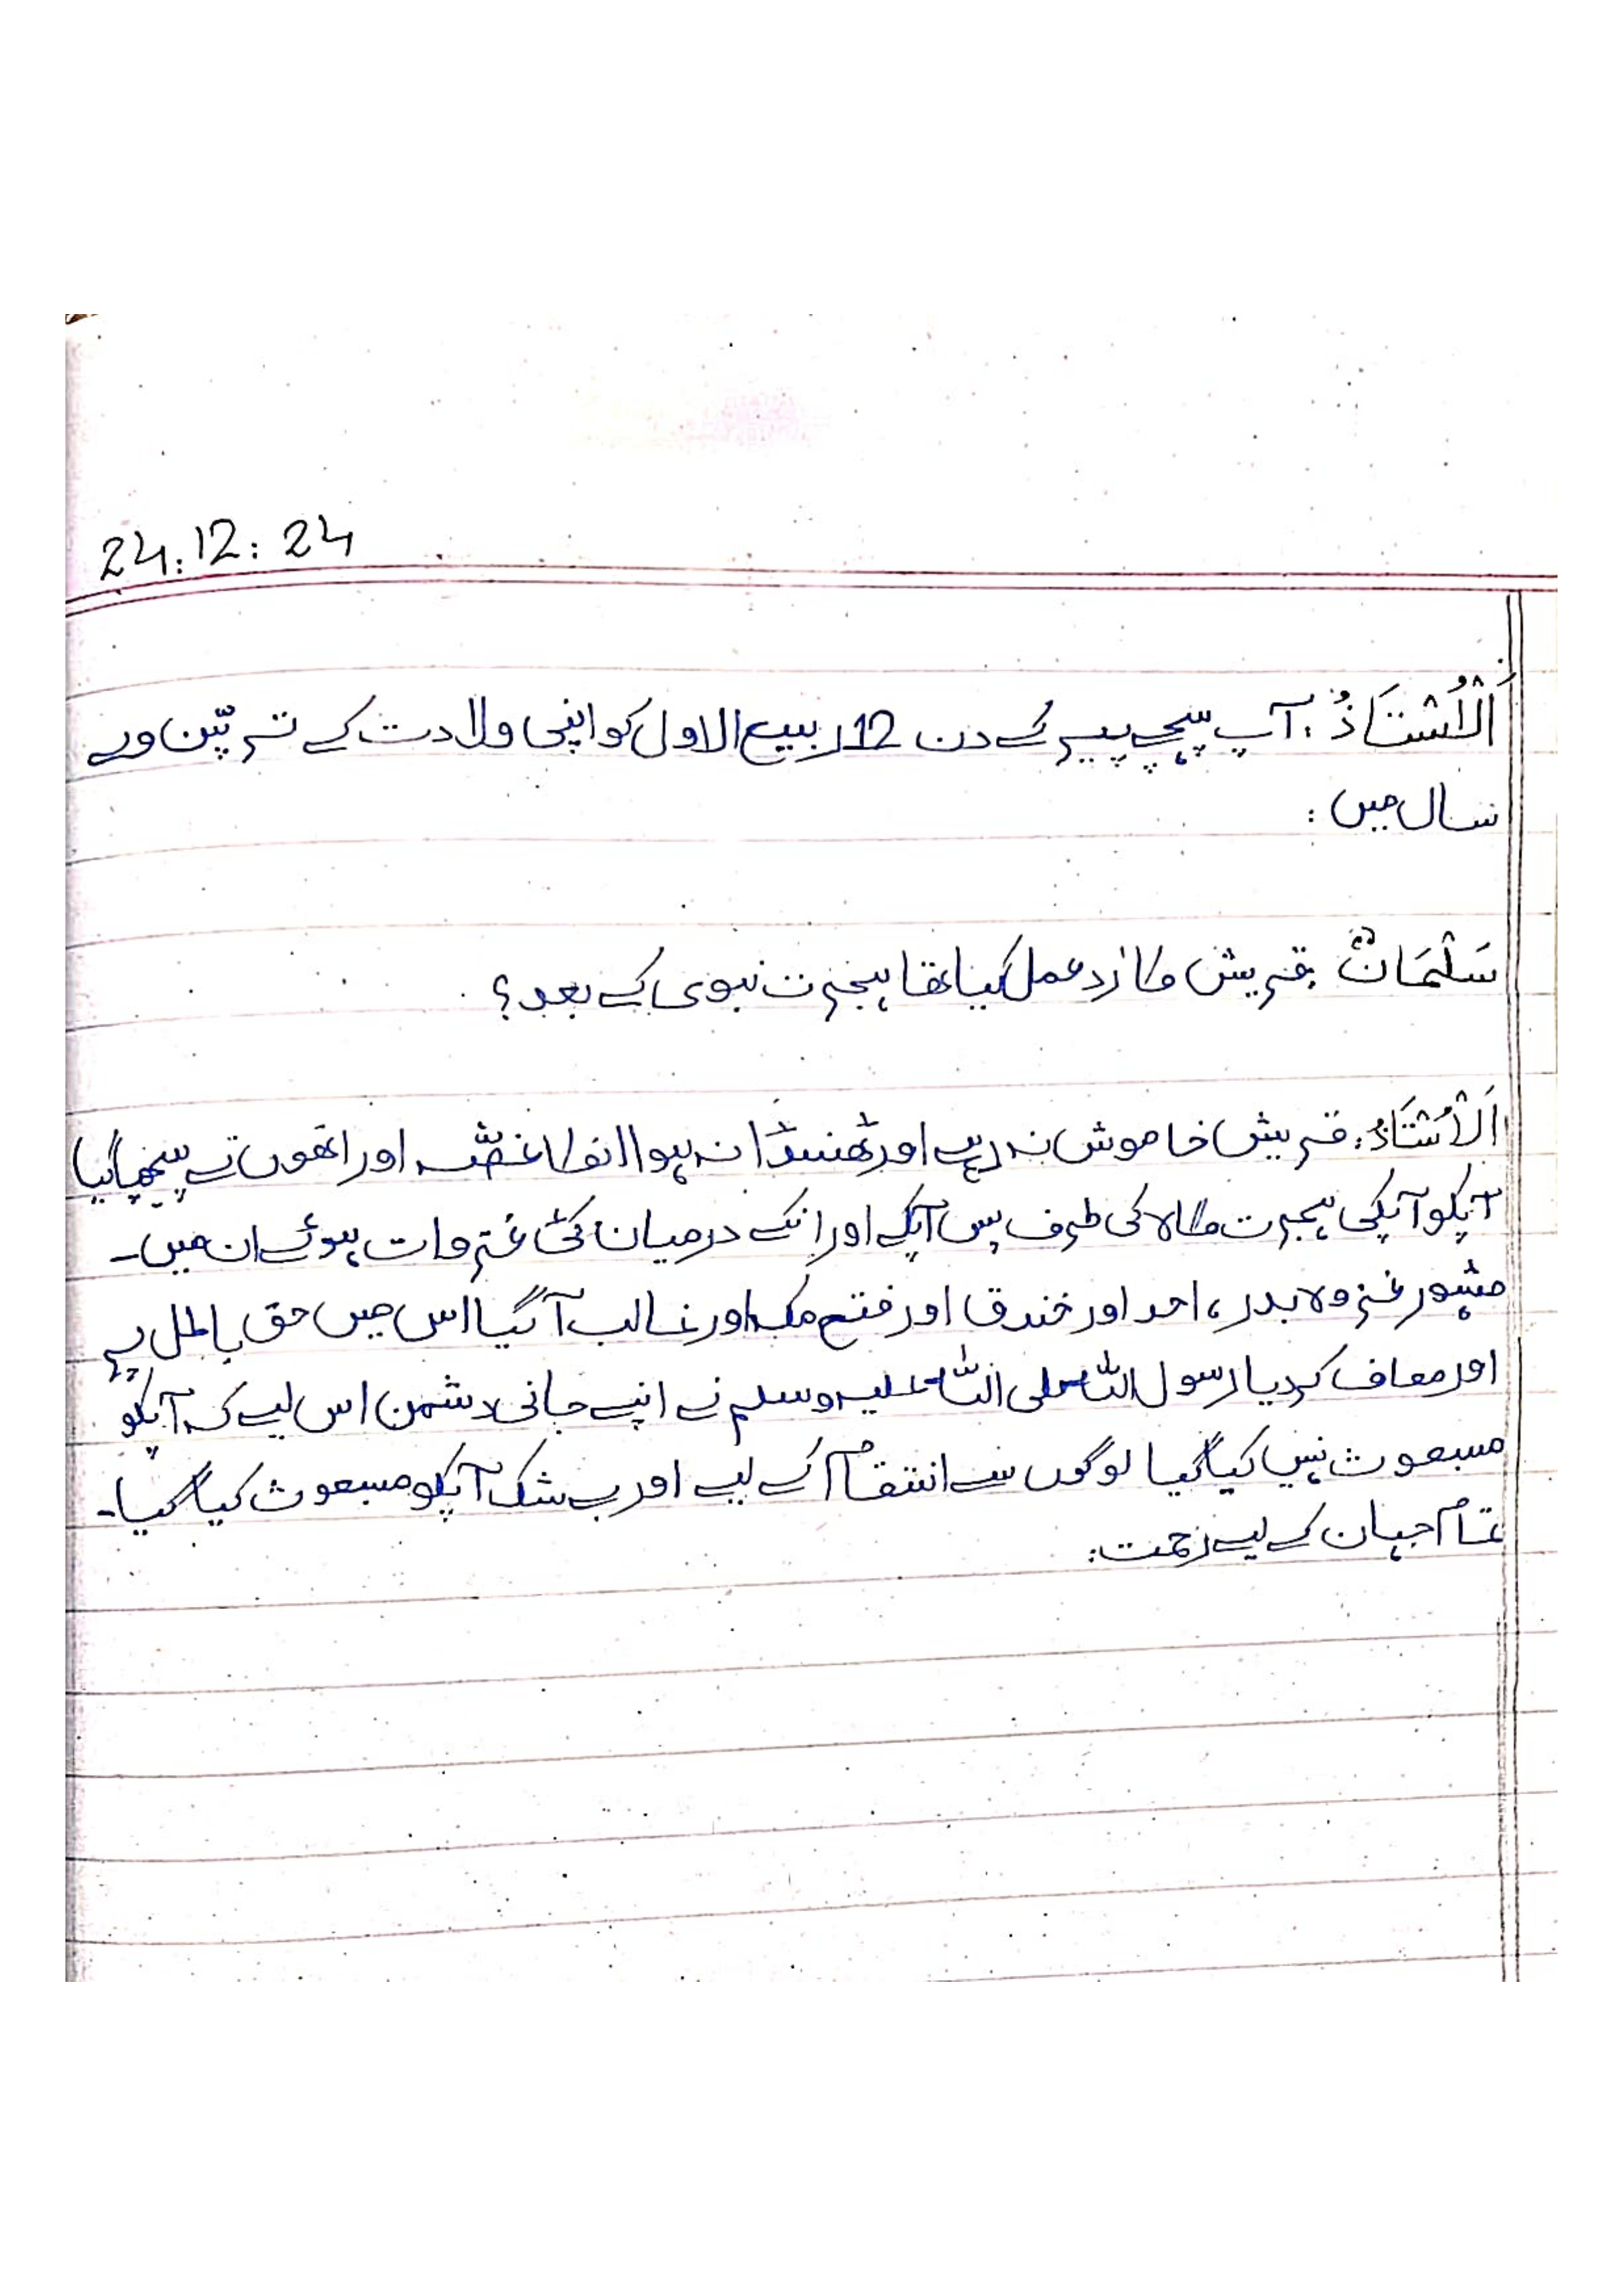 24:12:24
اَلْاُسْتَاذُ: آپ پہنچے پیر کے دن 12 ربیع الاول کو اپنی ولادت کے ترپّن وے
سال میں:
سَلْمَانُ: قریش کا ردعمل کیا تھا ہجرت نبوی کے بعد؟
اَلْاُسْتَاذُ: قریش خاموش نہ رہے اور ٹھنڈا نہ ہوا انکا غصّہ اور انھوں نے پیچھا کیا
آپکو آپکی ہجرت گاہ کی طرف پس آپکے اور انکے درمیان کئی غزوات ہوئے ان میں۔
مشہور غزوہ بدر، احد اور خندق اور فتح مکہ اور غالب آگیا اس میں حق باطل پہ
اور معاف کردیا رسول اللہ صلی اللہ علیہ وسلم نے اپنے جانی دشمن اس لیے کہ آپکو
مبعوث نہیں کیا گیا لوگوں سے انتقام کے لیے اور بے شک آپکو مبعوث کیا گیا۔
تمام جہان کے لیے رحمت: